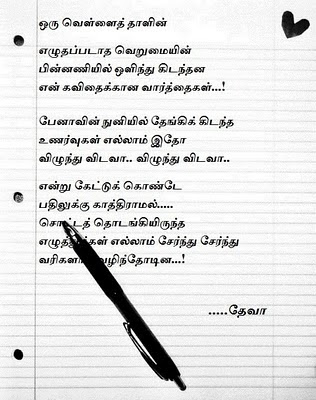 ஒரு வெள்ளைத் தாளின்
எழுதப்படாத வெறுமையின்
பின்னணியில் ஒளிந்து கிடந்தன
என் கவிதைக்கான வார்த்தைகள்...!
பேனாவின் நுனியில் தேங்கிக் கிடந்த
உணர்வுகள் எல்லாம் இதோ
விழுந்து விடவா.. விழுந்து விடவா..
என்று கேட்டுக் கொண்டே
பதிலுக்கு காத்திராமல்.....
தொடங்கியிருந்த
எல்லாம் சேர்ந்து சேர்ந்து
.....தேவா